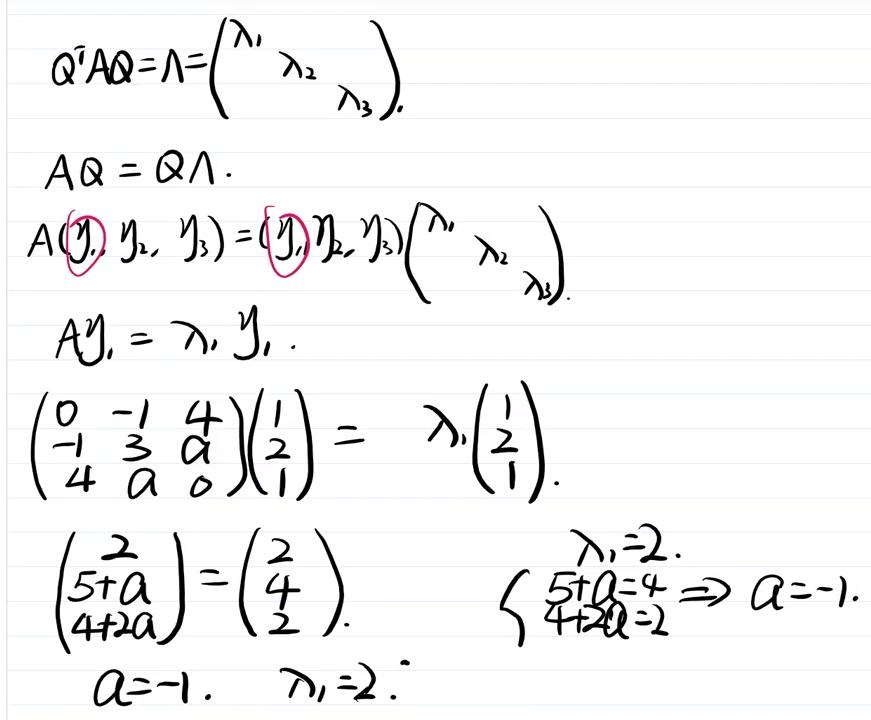 QᵀAQ = Λ = (λ₁ λ₂ λ₃).
AQ = QΛ.
A(η₁, η₂, η₃) = (η₁, η₂, η₃)(λ₁ λ₂ λ₃).
Aη₁ = λ₁ η₁.
(0 -1 4; -1 3 a; 4 a 0)(1; 2; 1) = λ₁(1; 2; 1).
(2; 5+a; 4+2a) = (2; 4; 2).
λ₁=2.
{5+a=4; 4+2a=2 ⇒ a=-1.
a=-1. λ₁=2.